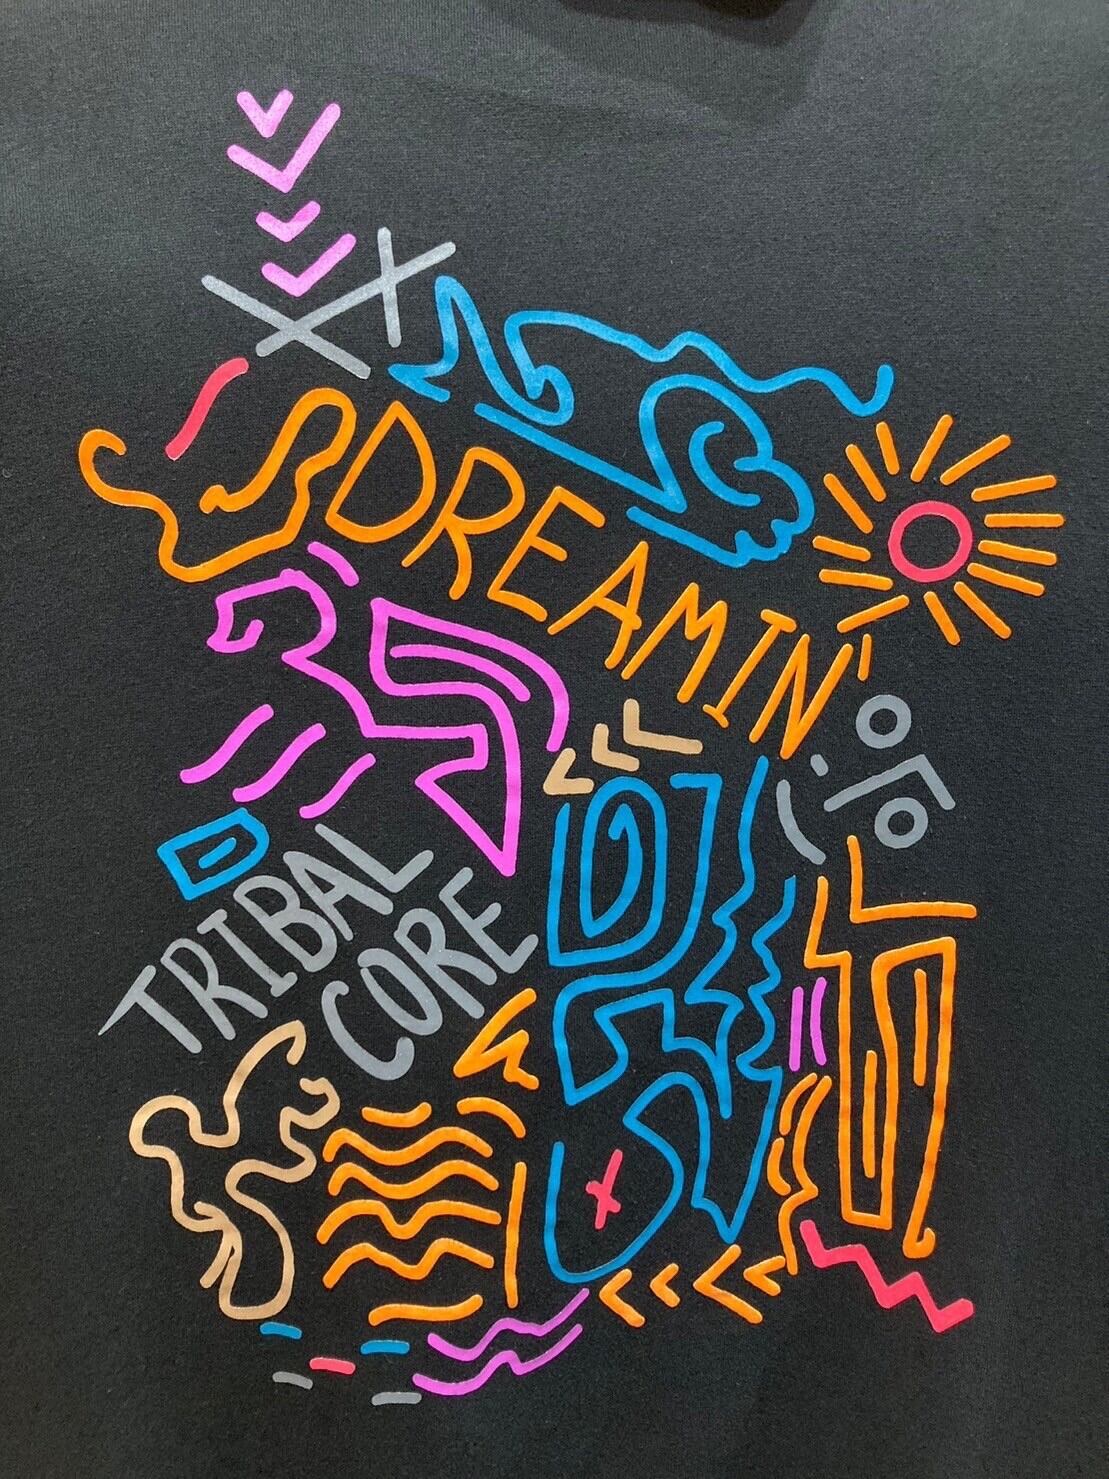 DREAMIN'
TRIBAL
CORE